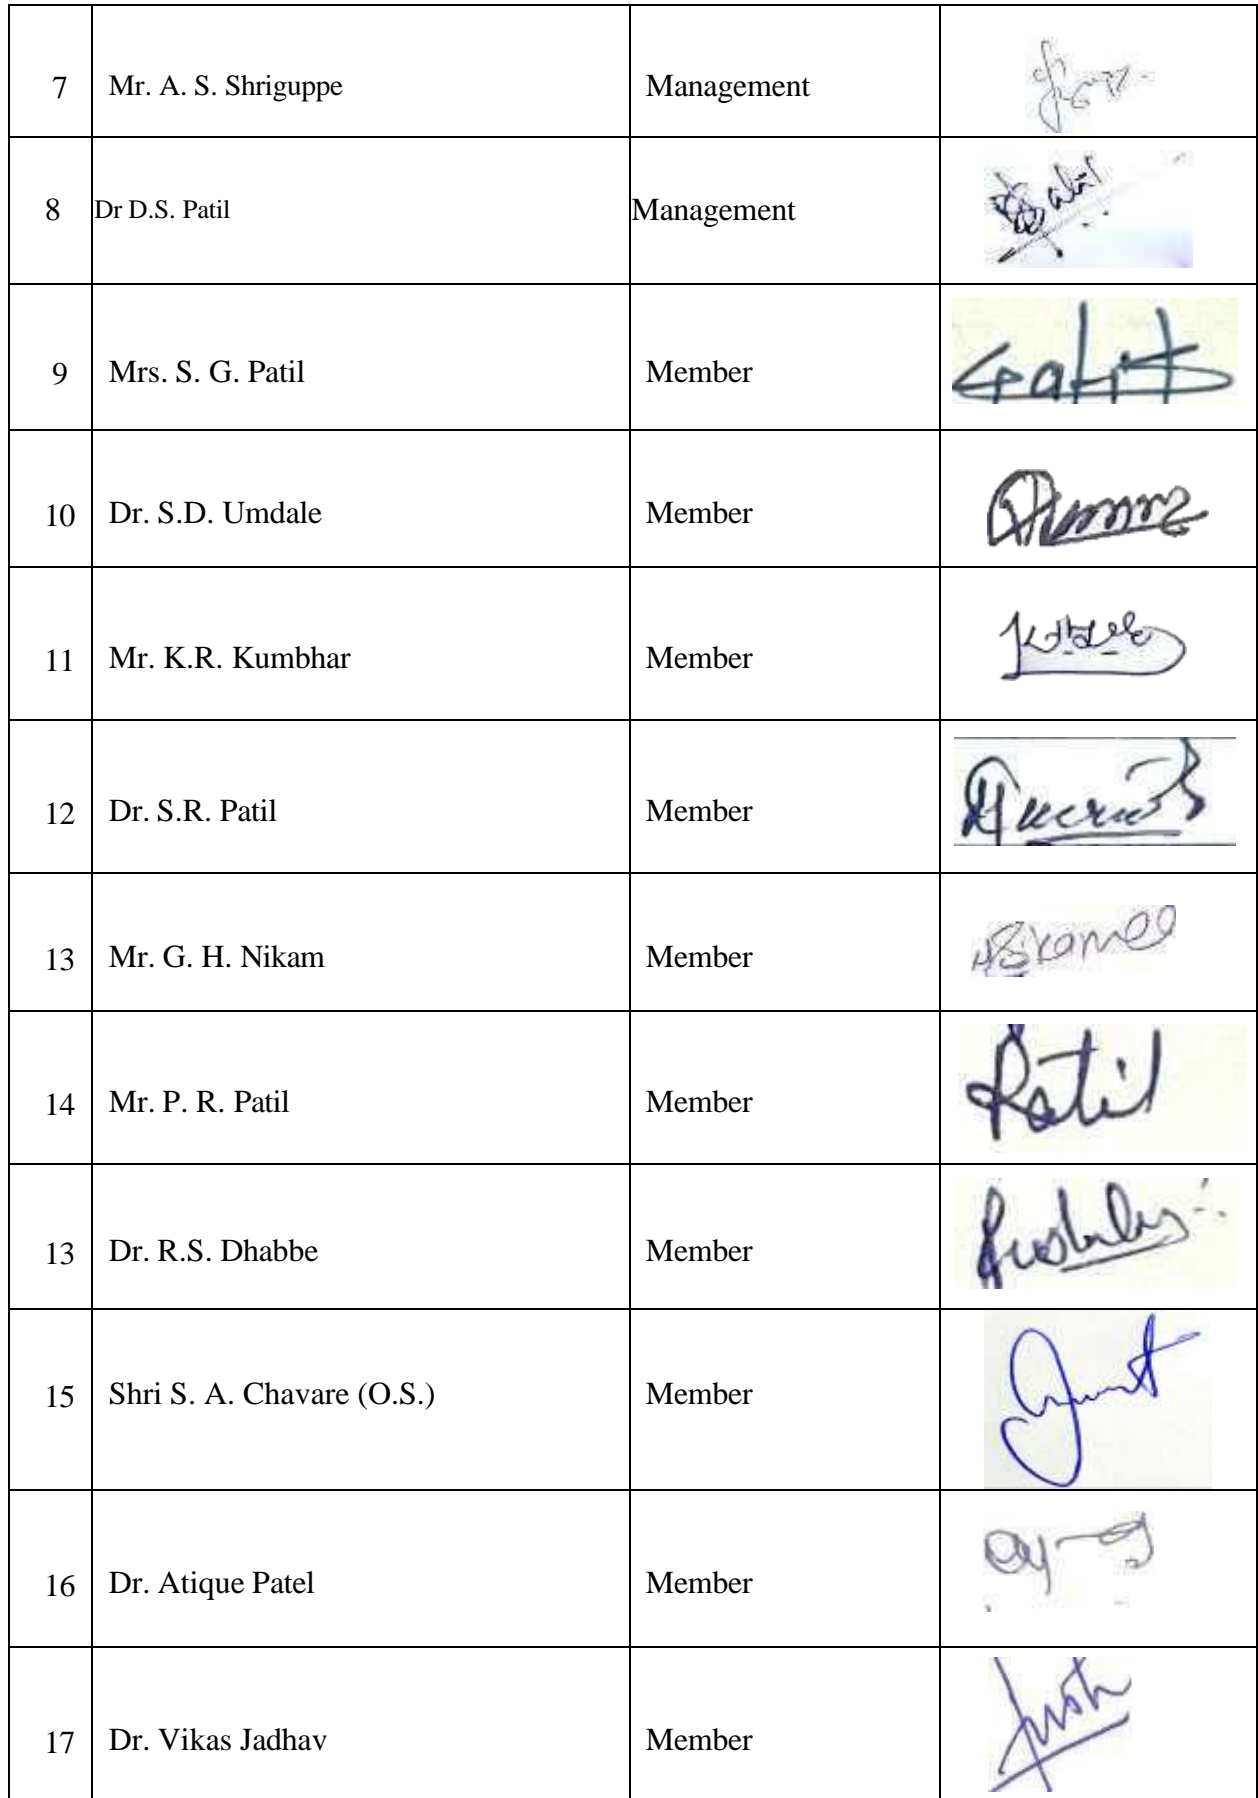 7 Mr. A. S. Shriguppe Management
8 Dr D.S. Patil Management
9 Mrs. S. G. Patil Member
10 Dr. S.D. Umdale Member
11 Mr. K.R. Kumbhar Member
12 Dr. S.R. Patil Member
13 Mr. G. H. Nikam Member
14 Mr. P. R. Patil Member Patil
13 Dr. R.S. Dhabbe Member
15 Shri S. A. Chavare (O.S.) Member
16 Dr. Atique Patel Member
17 Dr. Vikas Jadhav Member